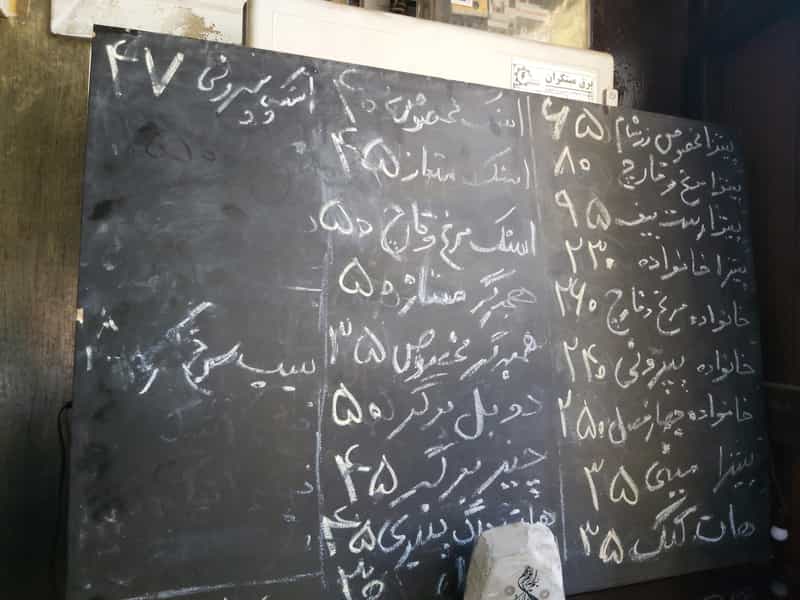 برق صنکران
پیتزا مخصوص رشام ۶۵
پیتزا مرغ و قارچ ۸۰
پیتزا رست بیف ۹۵
پیتزا خانواده ۲۳۰
خانواده مرغ و قارچ ۲۶۰
خانواده پپرونی ۲۴۰
خانواده چهار فصل ۲۵۰
پیتزا مینی ۳۵
هات کینگ ۳۵
اسنک مخصوص ۴۰
اسنک ممتاز ۴۵
اسنک مرغ و قارچ ۵۰
همبرگر ممتاز ۵۰
همبرگر مخصوص ۳۵
دوبل برگر ۵۰
چیز برگر ۴۵
هات داگ پنیری ۴۵
۳۰
اسنک پپرونی ۴۷
سیب سرخ کرده